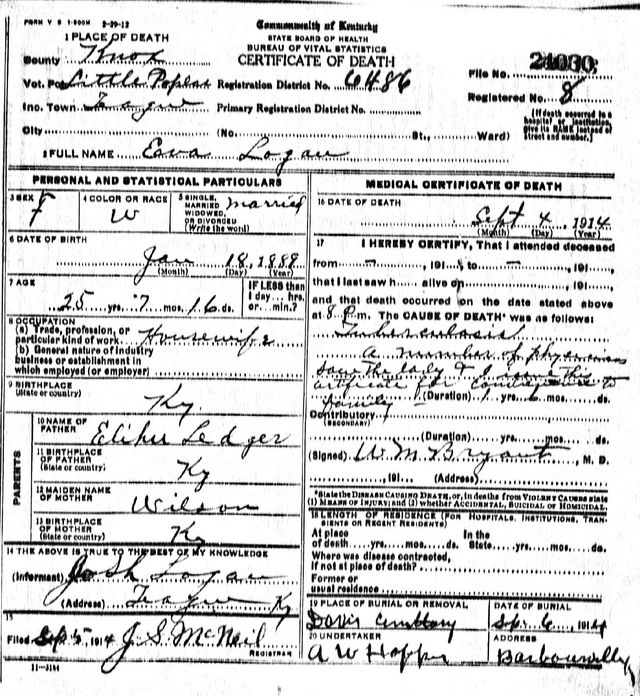 FORM V S 1-500M 2-29-12
Commonwealth of Kentucky
STATE BOARD OF HEALTH
BUREAU OF VITAL STATISTICS
CERTIFICATE OF DEATH
1 PLACE OF DEATH
County Knox
Vot. Pct Little Poplar Registration District No. 6486
Inc. Town Primary Registration District No.
City (No. St., Ward)
File No. 24030
Registered No. 8
[If death occurred in a
hospital or institution,
give its NAME instead of
street and number.]
2 FULL NAME Eava Logan
PERSONAL AND STATISTICAL PARTICULARS
3 SEX F
4 COLOR OR RACE W
5 SINGLE, MARRIED, WIDOWED, OR DIVORCED (Write the word) Married
6 DATE OF BIRTH
Jan 18, 1888
(Month) (Day) (Year)
7 AGE
25 yrs. 7 mos. 16 ds.
IF LESS than
1 day... hrs.
or... min.?
8 OCCUPATION
(a) Trade, profession, or
particular kind of work Housewife
(b) General nature of industry
business or establishment in
which employed (or employer)
9 BIRTHPLACE
(State or country) Ky.
PARENTS
10 NAME OF
FATHER Elihu Ledger
11 BIRTHPLACE
OF FATHER
(State or country) Ky
12 MAIDEN NAME
OF MOTHER Wilson
13 BIRTHPLACE
OF MOTHER
(State or country) Ky
14 THE ABOVE IS TRUE TO THE BEST OF MY KNOWLEDGE
(Informant) Josh Logan
(Address) Ky
15
Filed Sep 5 1914 J. S. McNeil
REGISTRAR
11-3184
MEDICAL CERTIFICATE OF DEATH
16 DATE OF DEATH
Sept 4, 1914
(Month) (Day) (Year)
17 I HEREBY CERTIFY, That I attended deceased
from —, 191 , to —, 191 ,
that I last saw h alive on , 191 ,
and that death occurred on the date stated above
at 8 P.m. The CAUSE OF DEATH* was as follows:
Tuberculosis
A number of physicians
saw the lady & I issue this
certificate for convenience to
family (Duration) 1 yrs. 6 mos. ds.
Contributory
(SECONDARY)
(Duration) yrs. mos. ds.
(Signed) W M Bryant M. D.
, 191 (Address)
*State the DISEASE CAUSING DEATH, or, in deaths from VIOLENT CAUSES state
(1) MEANS OF INJURY; and (2) whether ACCIDENTAL, SUICIDAL OR HOMICIDAL.
18 LENGTH OF RESIDENCE (FOR HOSPITALS, INSTITUTIONS, TRANSIENTS OR RECENT RESIDENTS)
At place In the
of death yrs. mos. ds. State yrs. mos. ds.
Where was disease contracted,
if not at place of death?
Former or
usual residence
19 PLACE OF BURIAL OR REMOVAL
Davis Cemetary
DATE OF BURIAL
Sep. 6, 1914
20 UNDERTAKER
A W Hopper
ADDRESS
Barbourville